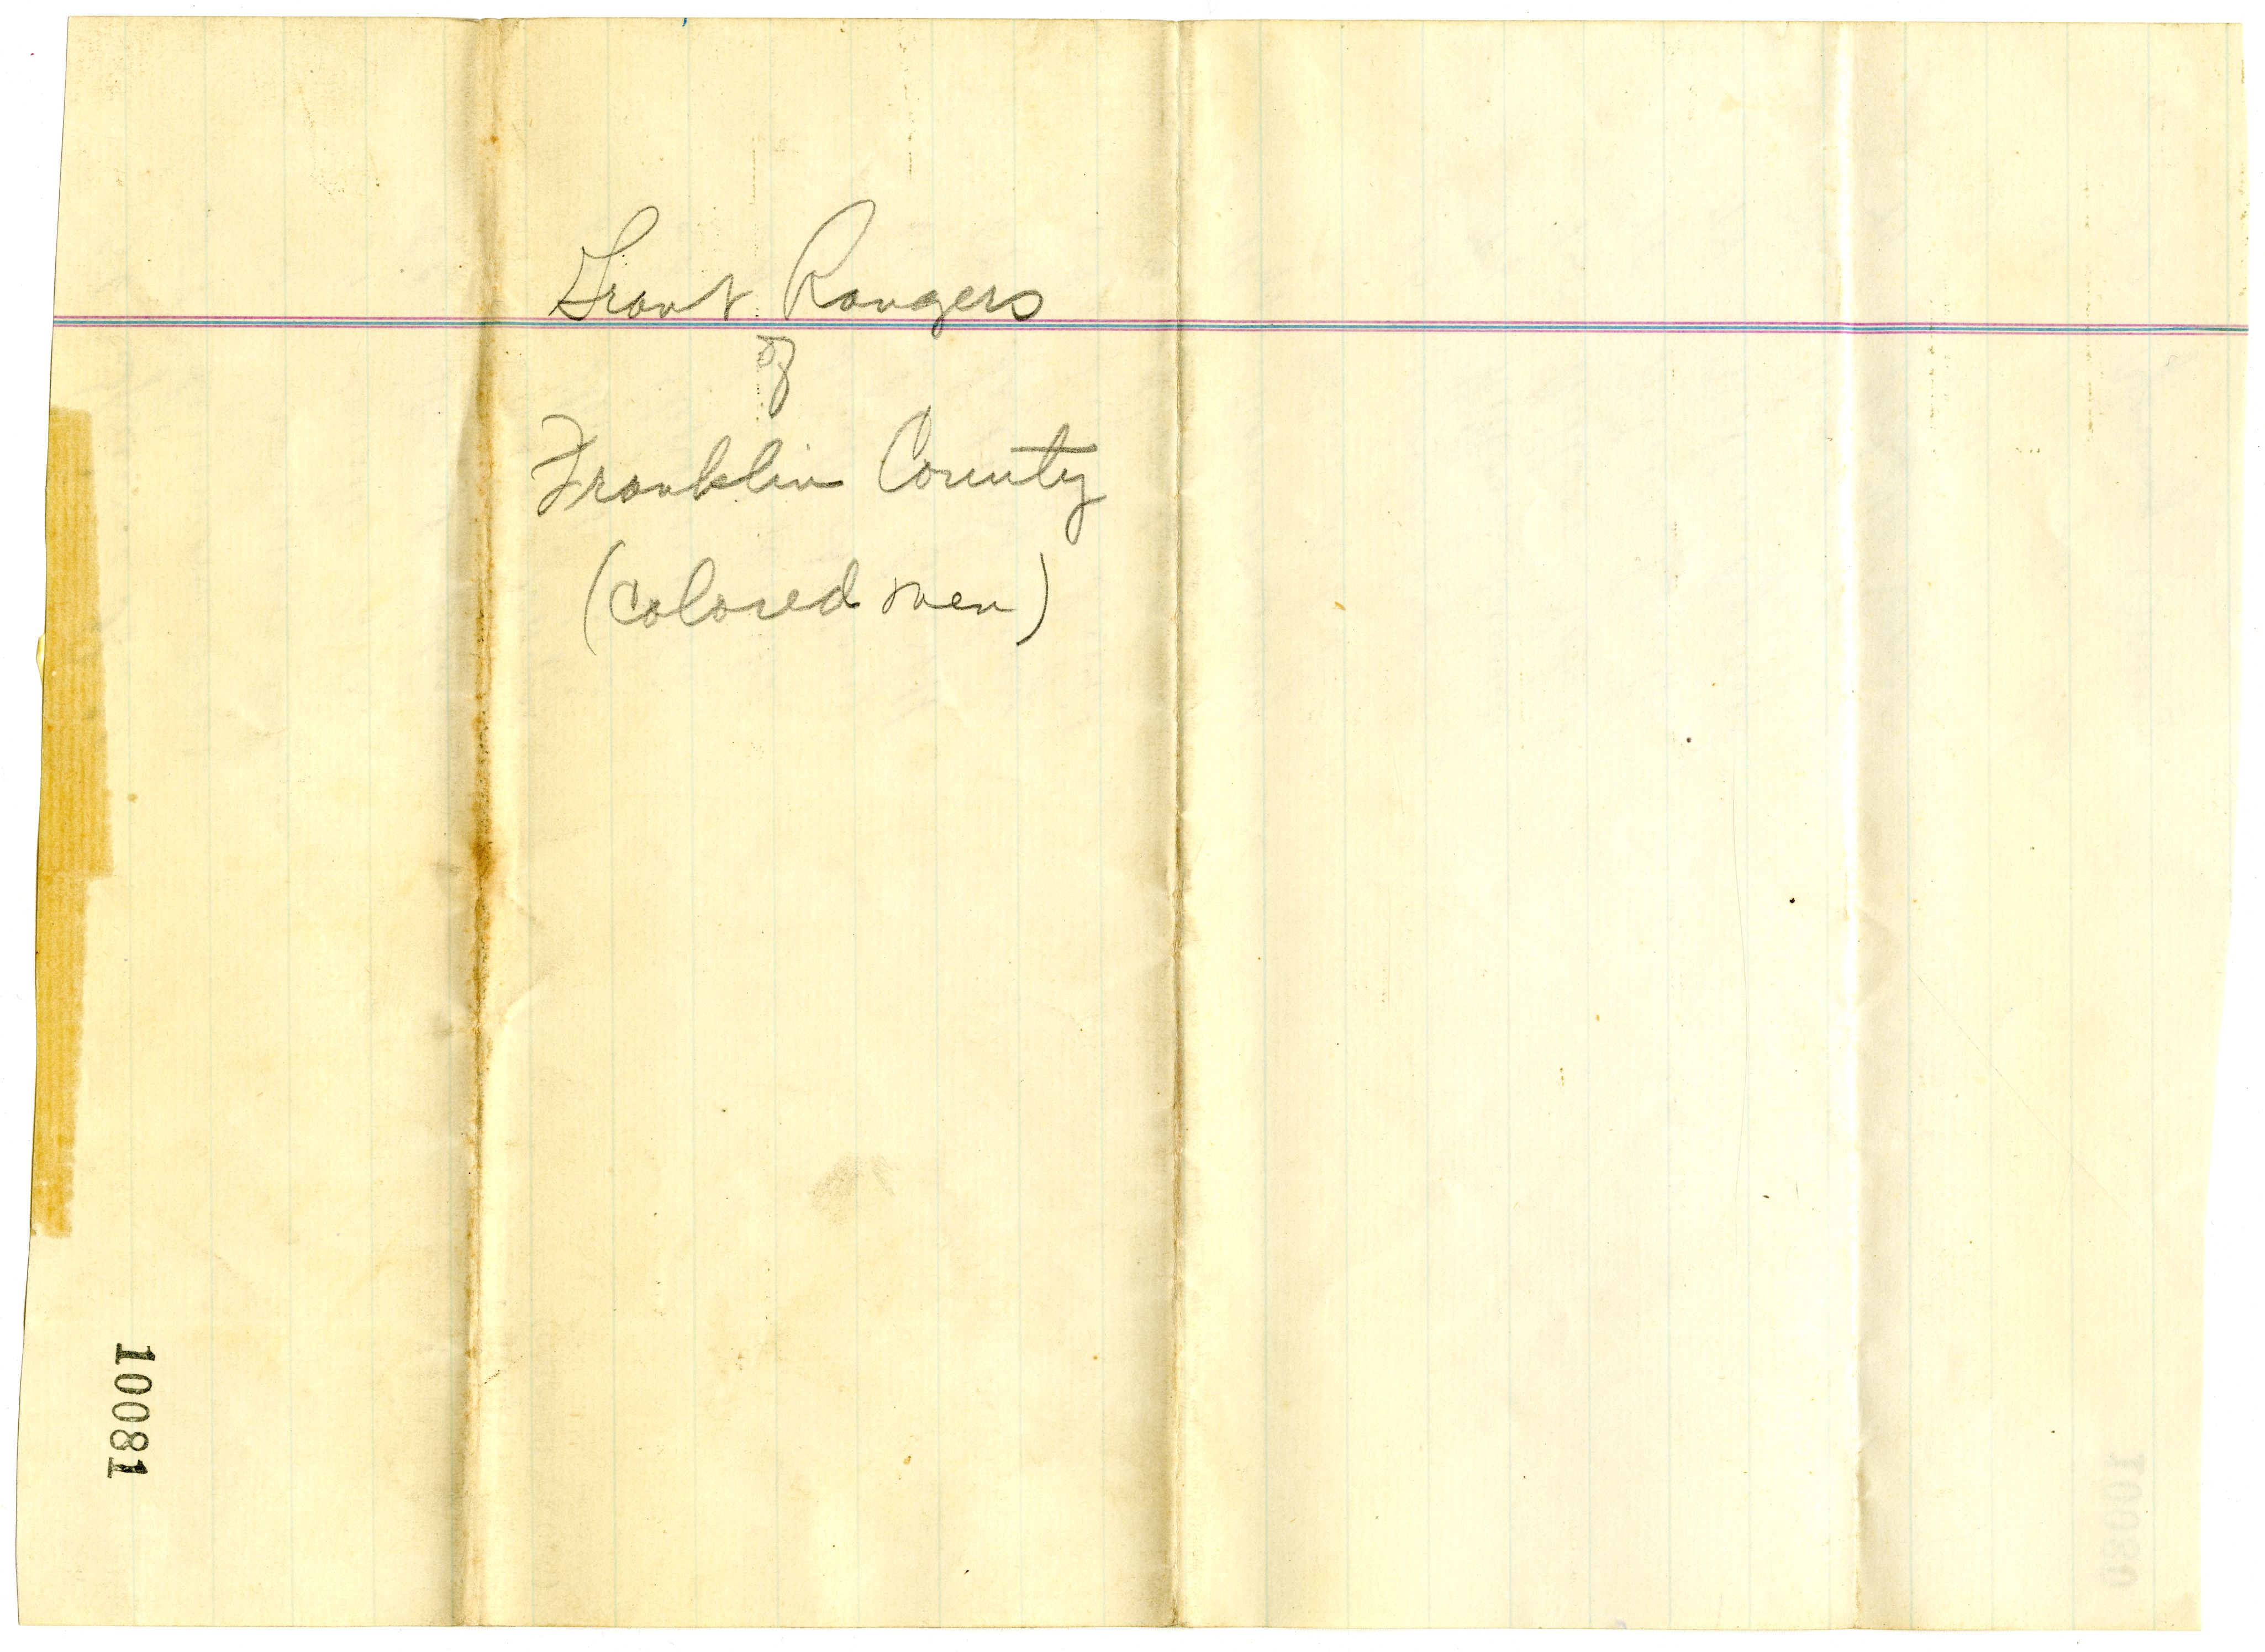 Grant Rangers
of
Franklin County
(colored men)
10081
10080